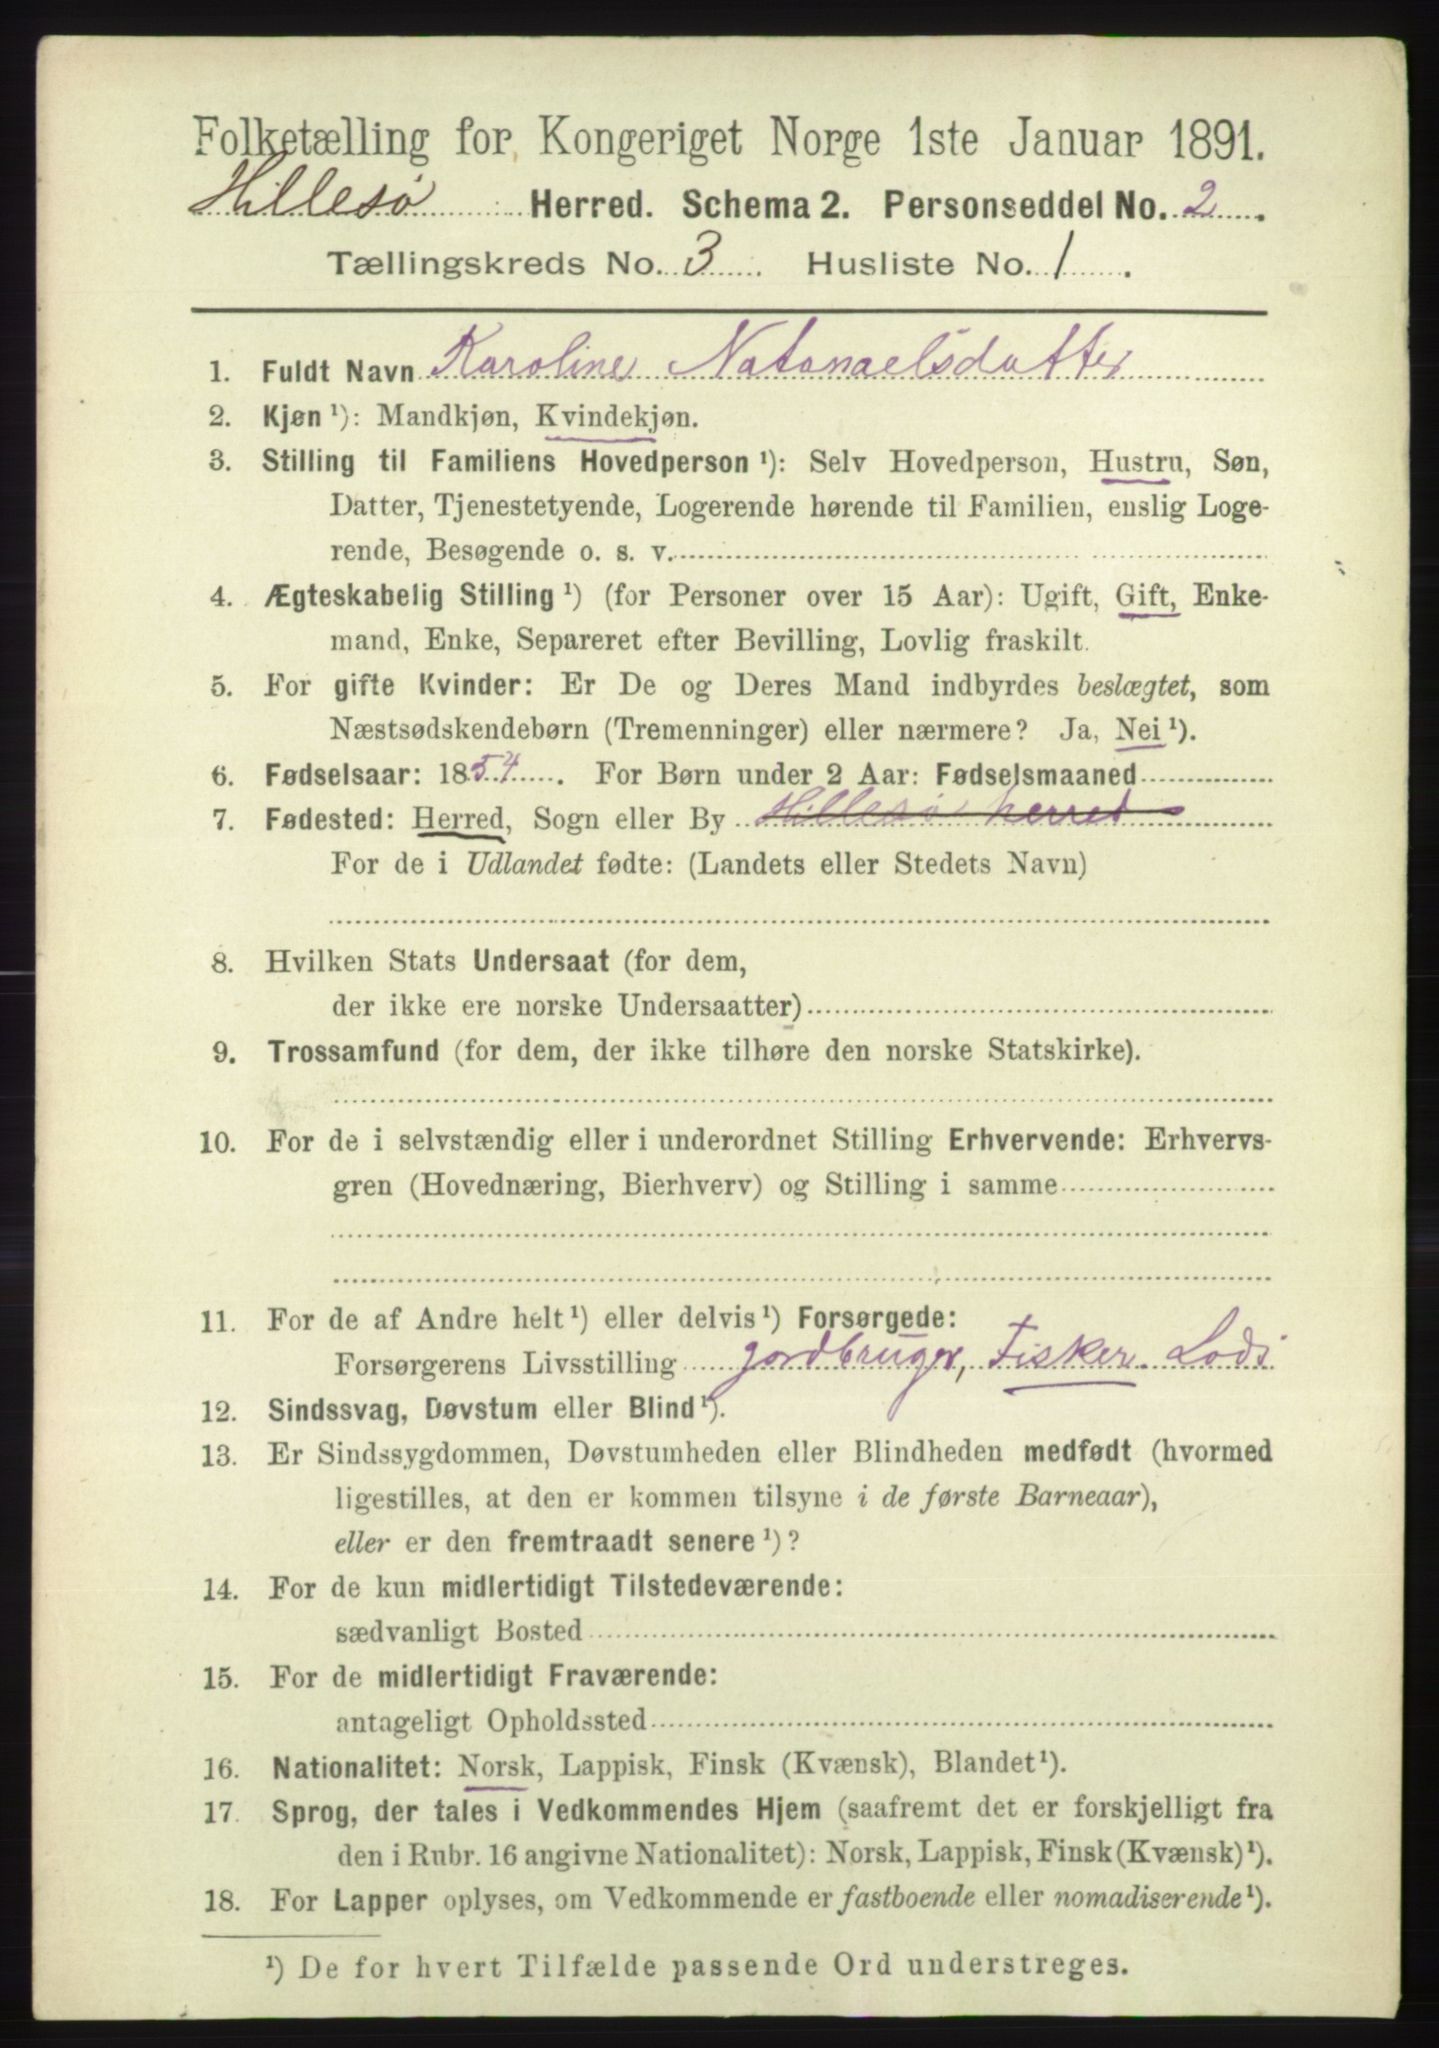 Folketælling for Kongeriget Norge 1ste Januar 1891.
Hillesø Herred. Schema 2. Personseddel No. 2.
Tællingskreds No. 3 Husliste No. 1.
1. Fuldt Navn Karoline Natanaelsdatter
2. Kjøn ¹): Mandkjøn, Kvindekjøn.
3. Stilling til Familiens Hovedperson ¹): Selv Hovedperson, Hustru, Søn,
Datter, Tjenestetyende, Logerende hørende til Familien, enslig Loge-
rende, Besøgende o. s. v.
4. Ægteskabelig Stilling ¹) (for Personer over 15 Aar): Ugift, Gift, Enke-
mand, Enke, Separeret efter Bevilling, Lovlig fraskilt.
5. For gifte Kvinder: Er De og Deres Mand indbyrdes beslægtet, som
Næstsødskendebørn (Tremenninger) eller nærmere? Ja, Nei ¹).
6. Fødselsaar: 1854. For Børn under 2 Aar: Fødselsmaaned
7. Fødested: Herred, Sogn eller By Hillesø herred
For de i Udlandet fødte: (Landets eller Stedets Navn)
8. Hvilken Stats Undersaat (for dem,
der ikke ere norske Undersaatter)
9. Trossamfund (for dem, der ikke tilhøre den norske Statskirke).
10. For de i selvstændig eller i underordnet Stilling Erhvervende: Erhvervs-
gren (Hovednæring, Bierhverv) og Stilling i samme
11. For de af Andre helt ¹) eller delvis ¹) Forsørgede:
Forsørgerens Livsstilling jordbruger, Fisker. Lodi
12. Sindssvag, Døvstum eller Blind ¹).
13. Er Sindssygdommen, Døvstumheden eller Blindheden medfødt (hvormed
ligestilles, at den er kommen tilsyne i de første Barneaar),
eller er den fremtraadt senere ¹)?
14. For de kun midlertidigt Tilstedeværende:
sædvanligt Bosted
15. For de midlertidigt Fraværende:
antageligt Opholdssted
16. Nationalitet: Norsk, Lappisk, Finsk (Kvænsk), Blandet ¹).
17. Sprog, der tales i Vedkommendes Hjem (saafremt det er forskjelligt fra
den i Rubr. 16 angivne Nationalitet): Norsk, Lappisk, Finsk (Kvænsk) ¹).
18. For Lapper oplyses, om Vedkommende er fastboende eller nomadiserende ¹).
¹) De for hvert Tilfælde passende Ord understreges.